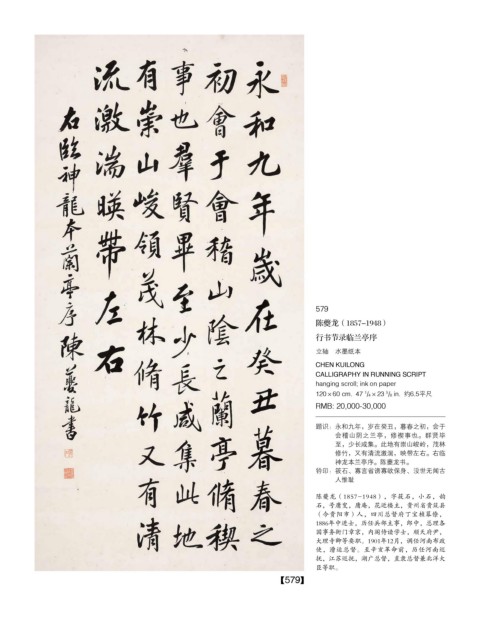 永和九年歲在癸丑暮春之
初會于會稽山陰之蘭亭脩稧
事也羣賢畢至少長咸集此地
有崇山峻領茂林脩竹又有清
流激湍暎帶左右
右臨神龍本蘭亭序陳夔龍書
【579】
579
陈夔龙（1857-1948）
行书节录临兰亭序
立轴 水墨纸本
CHEN KUILONG
CALLIGRAPHY IN RUNNING SCRIPT
hanging scroll; ink on paper
RMB: 20,000-30,000
题识：永和九年，岁在癸丑，暮春之初，会于
会稽山阴之兰亭，修楔事也。群贤毕
至，少长咸集。此地有崇山峻岭，茂林
修竹，又有清流激湍，映带左右。右临
神龙本兰亭序。陈夔龙书。
陈夔龙（1857-1948），字筱石，小石，韵
石，号庸叟，庸庵，花近楼主，贵州省贵筑县
（今贵阳市）人，四川总督府丁宝桢幕僚，
1886年中进士，历任兵部主事，郎中，总理各
国事务衙门章京，内阁侍读学士，顺天府尹，
大理寺卿等要职。1901年12月，调任河南布政
使，漕运总督。至辛亥革命前，历任河南巡
抚，江苏巡抚，湖广总督，直隶总督兼北洋大
臣等职。